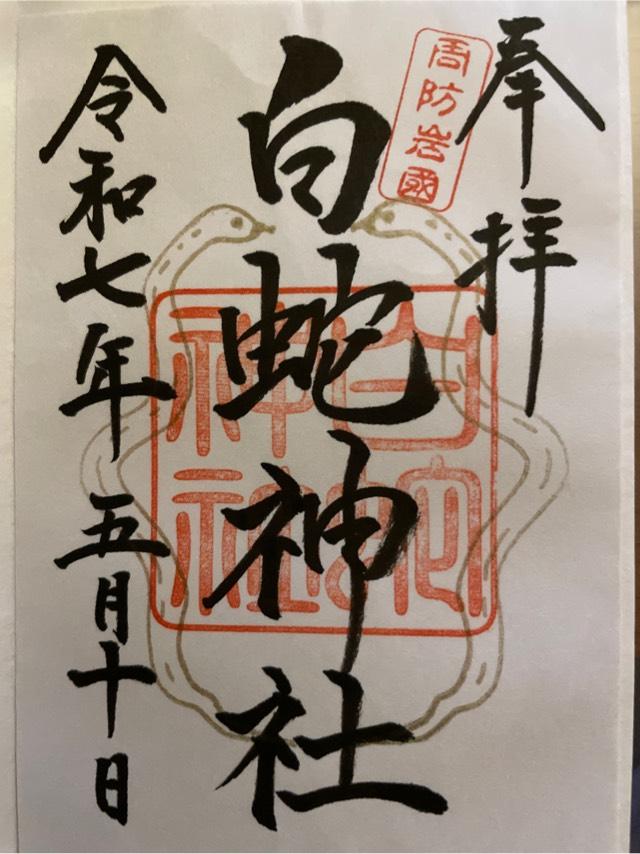 奉拝
周防岩國
白蛇神社
白蛇神社
令和七年五月十日